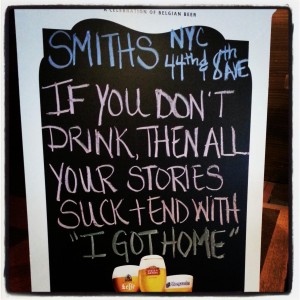 A CELEBRATION OF BELGIAN BEER
SMITHS NYC
44th & 8th AVE
IF YOU DON'T
DRINK, THEN ALL
YOUR STORIES
SUCK + END WITH
"I GOT HOME"
Leffe